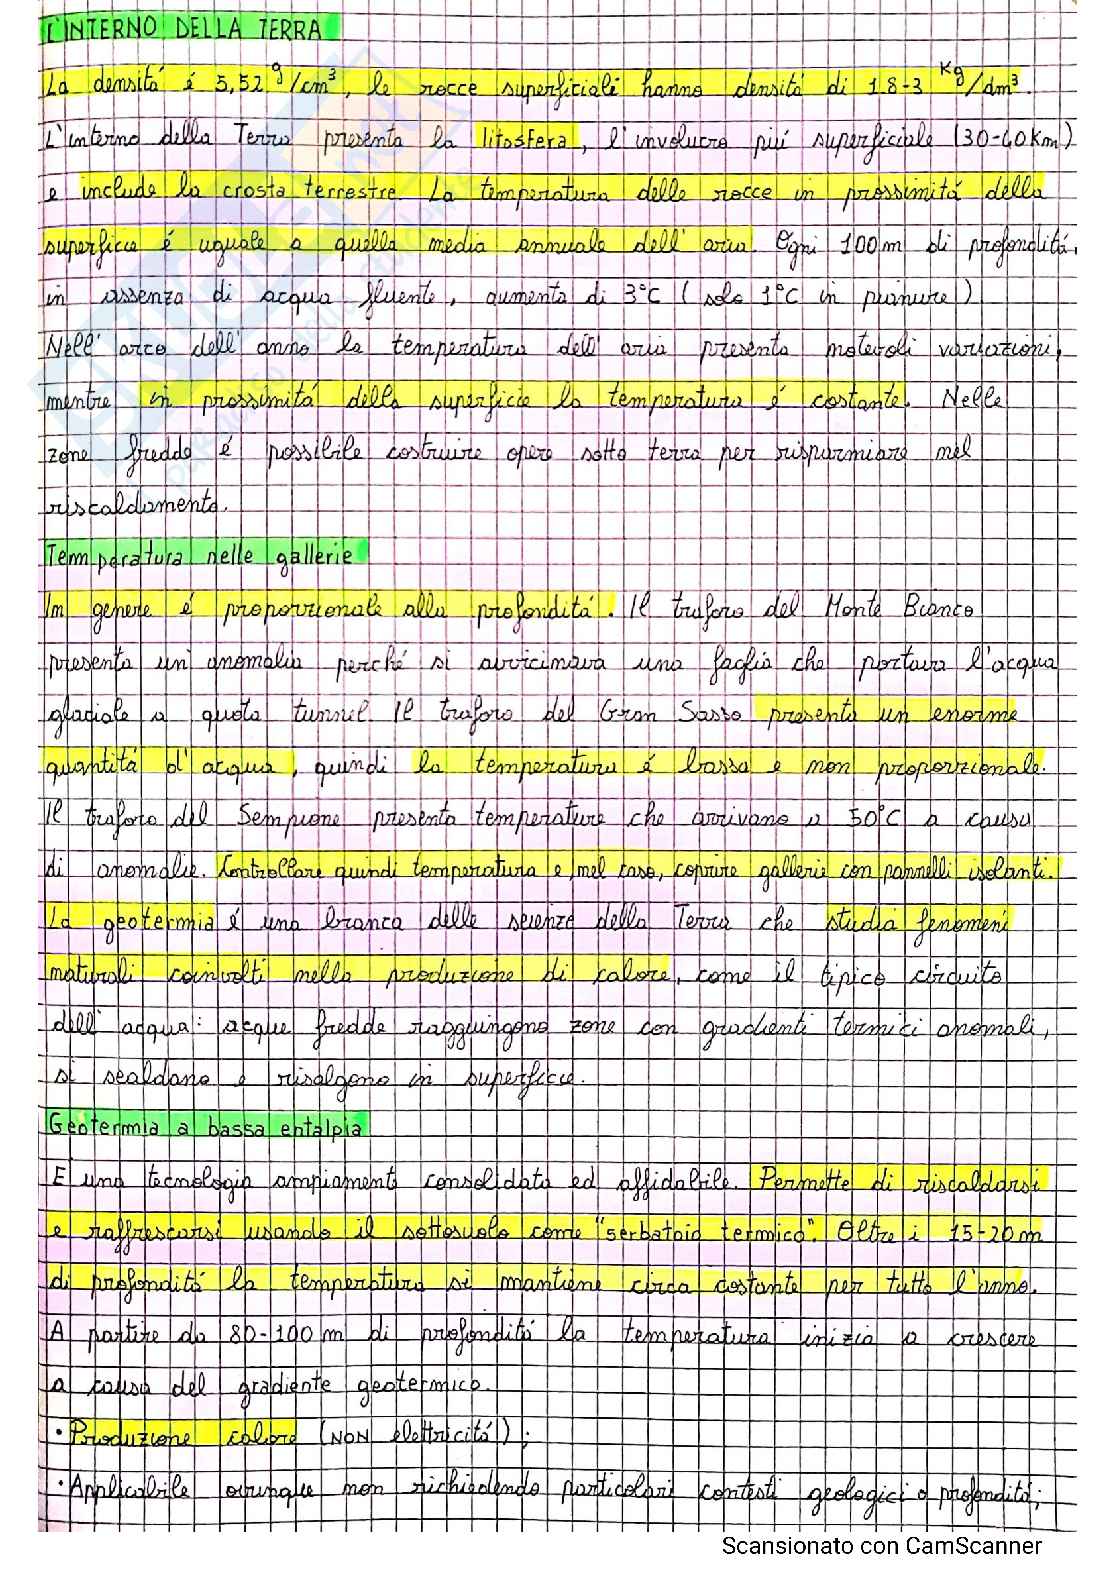 L'INTERNO DELLA TERRA
La densitá é 5,52 g/cm³, le rocce superficiali hanno densitá di 1.8-3 Kg/dm³.
L'interno della Terra presenta la litosfera, l'involucro piú superficiale (30-40Km)
e include la crosta terrestre. La temperatura delle rocce in prossimitá della
superficie é uguale a quella media annuale dell'aria. Ogni 100m di profonditá,
in assenza di acqua fluente, aumenta di 3°C (solo 1°C in pianure)
Nell'arco dell'anno la temperatura dell'aria presenta notevoli variazioni,
mentre in prossimitá della superficie la temperatura é costante. Nelle
zone fredde é possibile costruire opere sotto terra per risparmiare nel
riscaldamento.
Temperatura nelle gallerie
In genere é proporzionale alla profonditá. Il traforo del Monte Bianco
presenta un'anomalia perché si avvicinava una faglia che portava l'acqua
glaciale a quota tunnel. Il traforo del Gran Sasso presenta un enorme
quantitá d'acqua, quindi la temperatura é bassa e non proporzionale.
Il traforo del Sempione presenta temperature che arrivano a 50°C a causa
di anomalie. Controllare quindi temperatura e, nel caso, coprire gallerie con pannelli isolanti.
La geotermia é una branca delle scienze della Terra che studia fenomeni
naturali coinvolti nella produzione di calore, come il tipico circuito
dell'acqua: acque fredde raggiungono zone con gradienti termici anomali,
si scaldano e risalgono in superficie.
Geotermia a bassa entalpia
E' una tecnologia ampiamente consolidata ed affidabile. Permette di riscaldarsi
e raffrescarsi usando il sottosuolo come "serbatoio termico". Oltre i 15-20m
di profonditá la temperatura si mantiene circa costante per tutto l'anno.
A partire da 80-100m di profonditá la temperatura inizia a crescere
a causa del gradiente geotermico.
· Produzione calore (NON elettricitá);
· Applicabile ovunque non richiedendo particolari contesti geologici o profonditá;
Scansionato con CamScanner